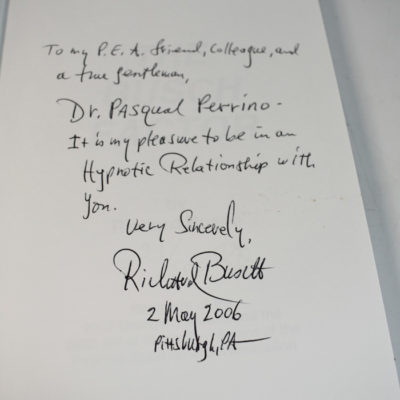 To my P.E.A. friend, Colleague, and
a true gentleman,
Dr. PASQUAL PERRINO -
It is my pleasure to be in an
Hypnotic Relationship with
you.
Very Sincerely,
Richard
2 May 2006
Pittsburgh, PA